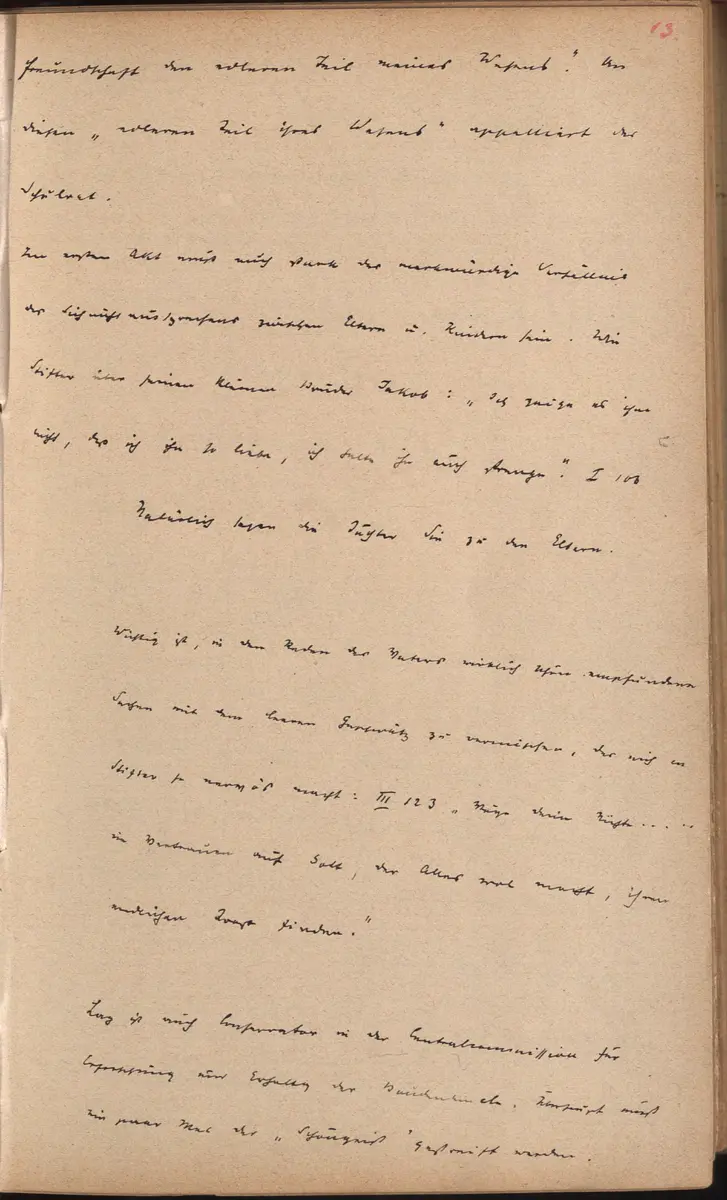 13.
Freundschaft den edleren Teil meines Wesens". An
diesen „edleren Teil ihres Wesens" appelliert der
Schulrat.
Im ersten Akt muss auch stark das merkwürdige Verhältnis
des Sichnichtaussprechens zwischen Eltern u. Kindern sein. Wie
Stifter über seinen kleinen Bruder Jakob: „Ich zeige es ihm
nicht, dass ich ihn so liebe, ich halte ihn auch strenge". I 108
Natürlich sagen die Töchter Sie zu den Eltern.
Wichtig ist, in den Reden des Vaters wirklich schön empfundene
Sachen mit dem leeren Geschwätz zu vermischen, das mich an
Stifter so nervös macht: III 123 „Möge dein .....
im Vertrauen auf Gott, der Alles wol macht, ihren
endlichen Trost finden."
ist auch Conservator in der Centralcommission für
Erforschung und Erhaltg der Baudenkmale. Überhaupt muss
ein paar Mal das „Schöngeist" gestreift werden.